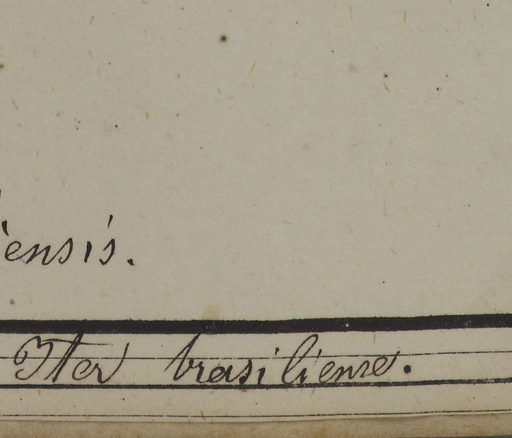 iensis.
Iter brasiliense.